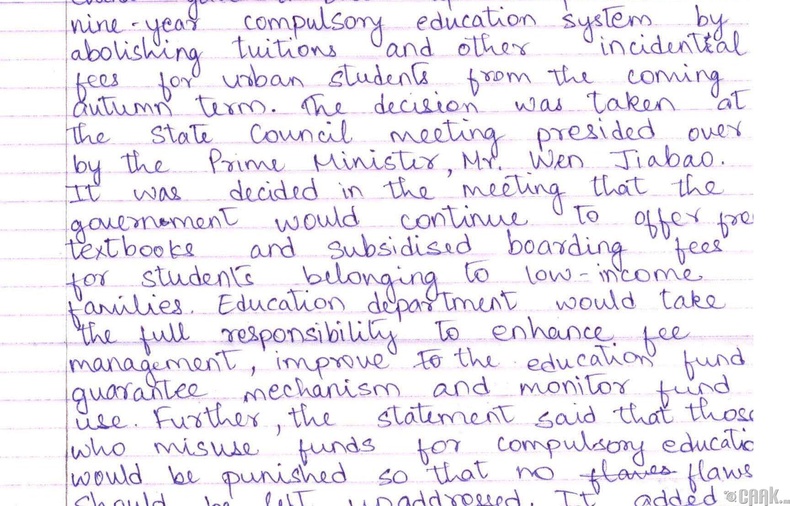 nine-year compulsory education system by
abolishing tuitions and other incidential
fees for urban students from the coming
autumn term. The decision was taken at
the State Council meeting presided over
by the Prime Minister, Mr. Wen Jiabao.
It was decided in the meeting that the
government would continue to offer fre
textbooks and subsidised boarding fees
for students belonging to low-income
families. Education department would take
the full responsibility to enhance fee
management, improve to the education fund
guarantee mechanism and monitor fund
use. Further, the statement said that thos
who misuse funds for compulsory educatio
would be punished so that no flaws flaws
should be left unaddressed. It added
caak